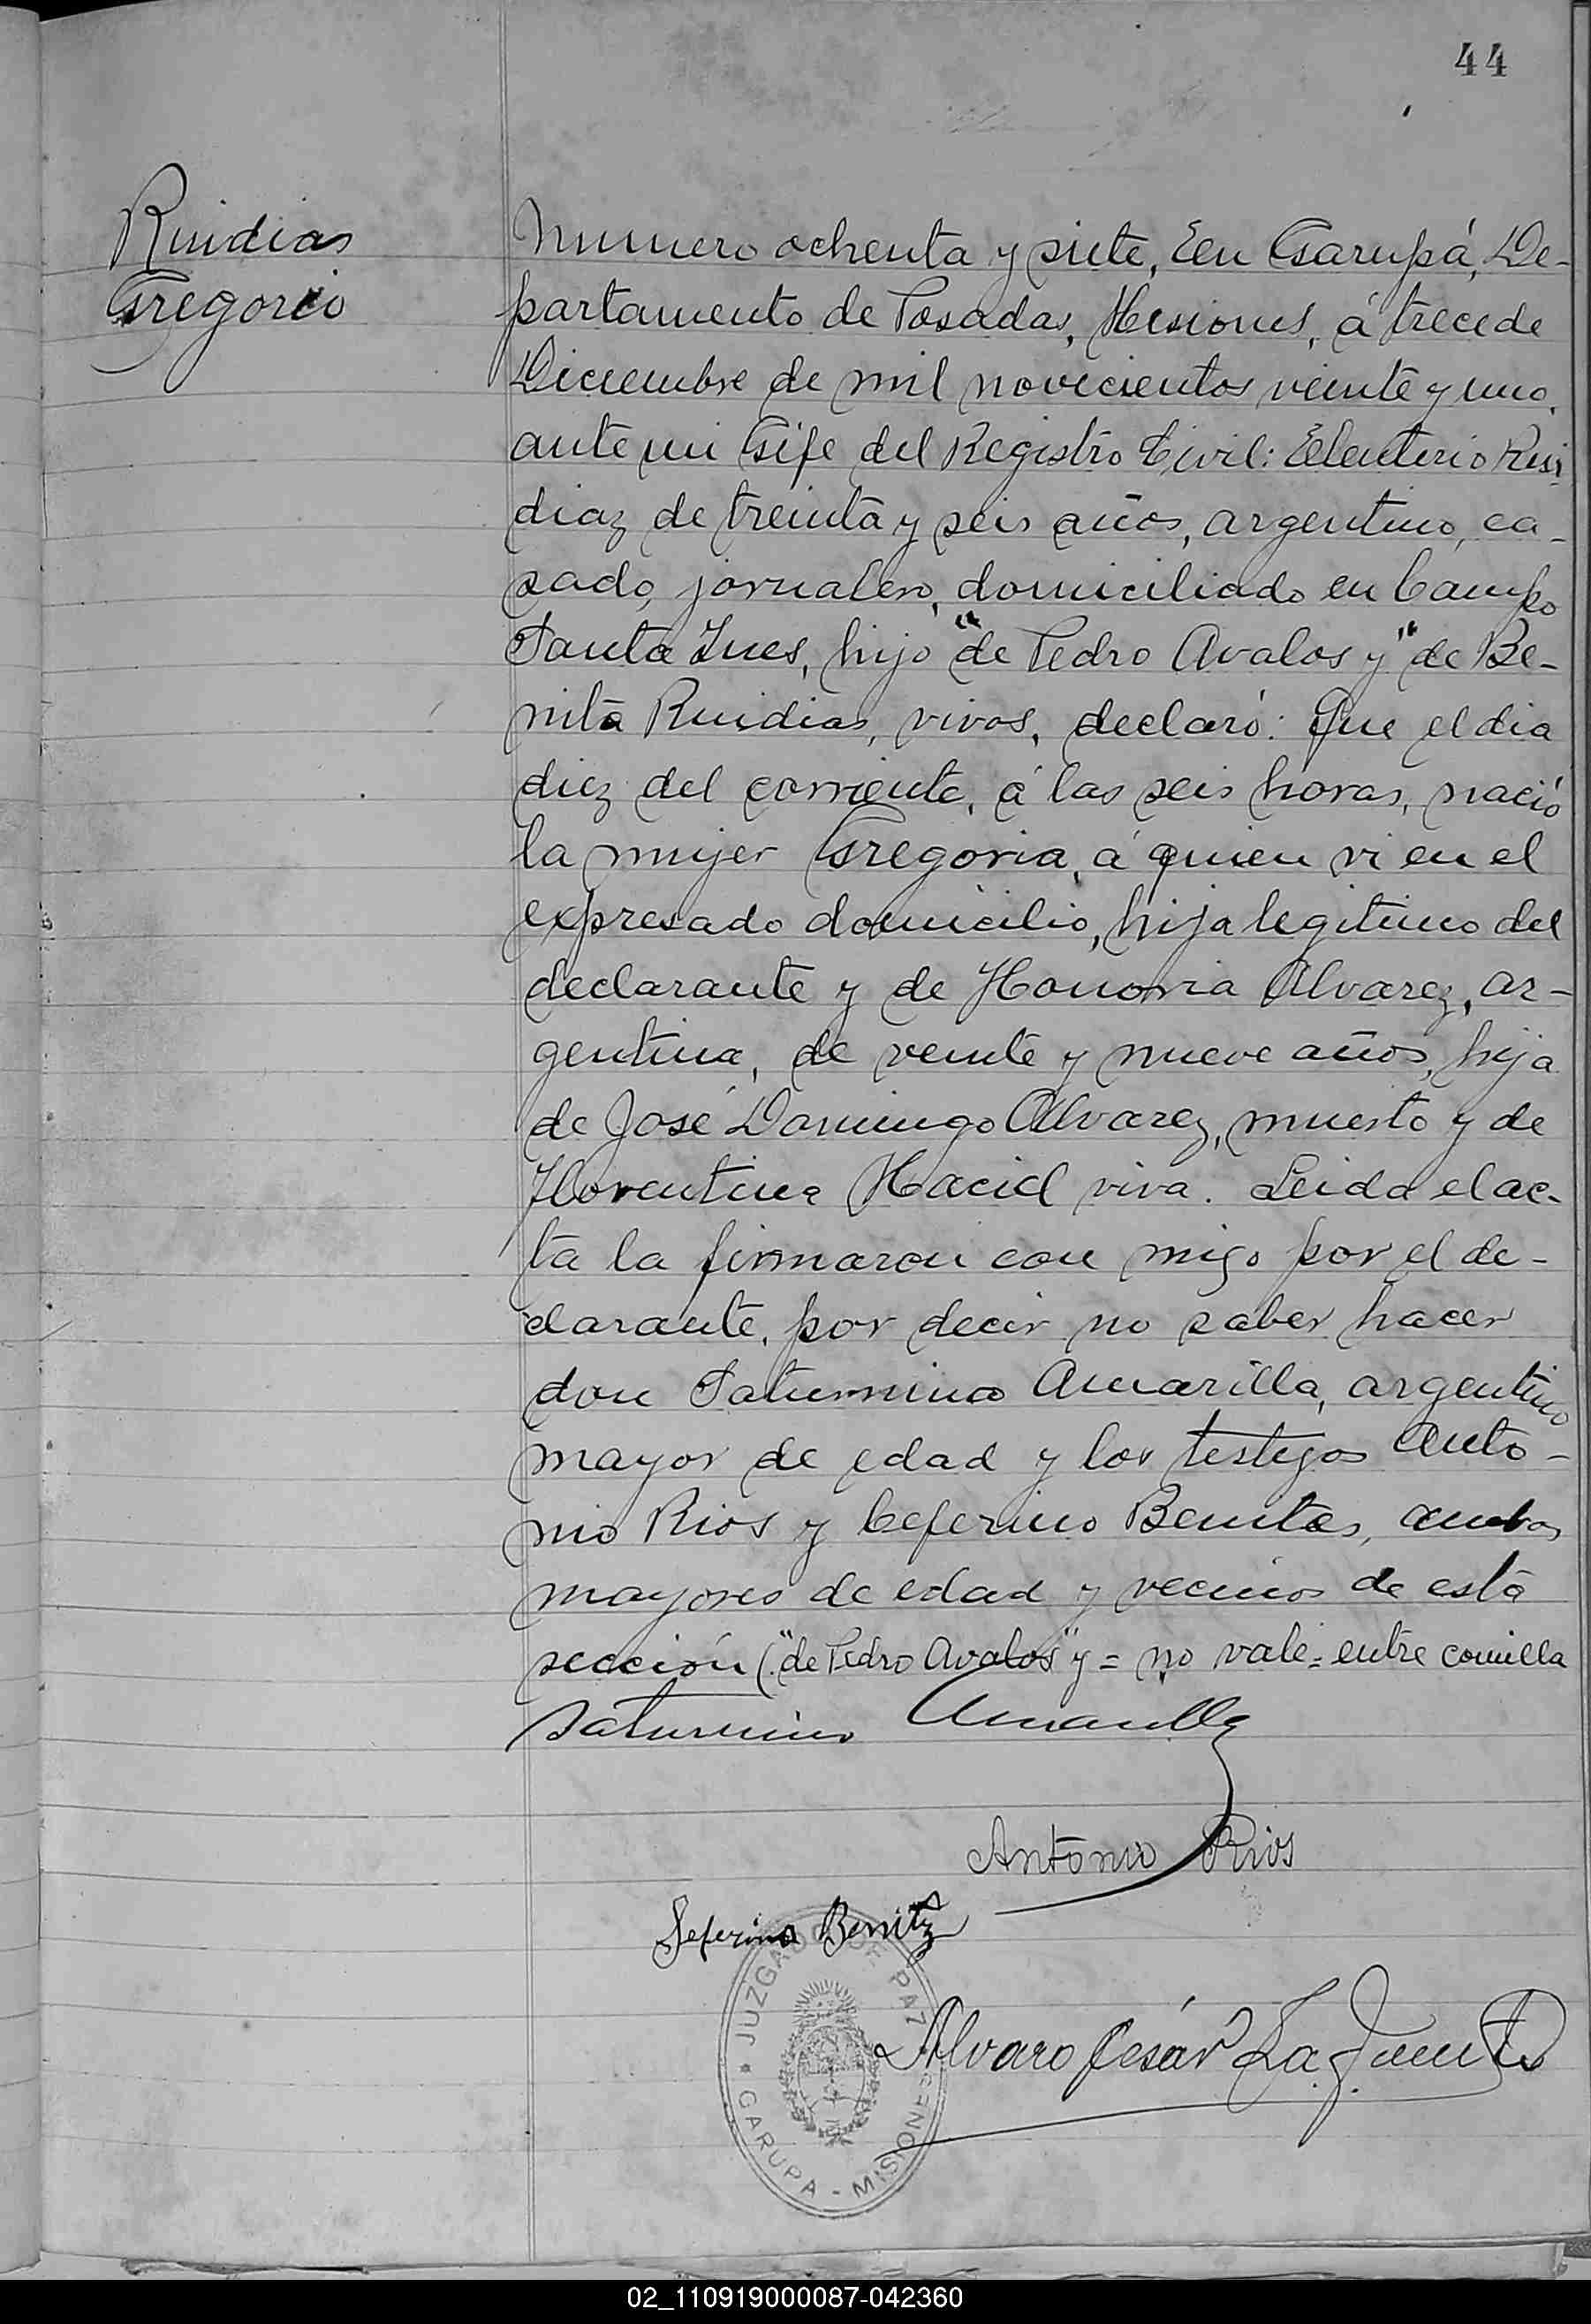 44
Ruidias
Gregorio
Numero ochenta y siete, En Garupá, De-
partamento de Posadas, Misiones, á trece de
Diciembre de mil novecientos veinte y uno,
ante mi Gefe del Registro Civil: Eleuterio Rui
diaz de treinta y seis años, argentino, ca-
sado, jornalero, domiciliado en Campo
Santa Ines, hijo "de Pedro Avalos y" de Be-
nita Ruidias, vivos, declaró: Que el dia
diez del corriente, á las seis horas, nació
la mujer Gregoria, á quien vi en el
expresado domicilio, hija legitimo del
declarante y de Honoria Alvarez, ar-
gentina, de veinte y nueve años, hija
de José Domingo Alvarez, muerto y de
Florentina Maciel viva. Leida el ac-
ta la firmaron con migo por el de-
clarante, por decir no saber hacer
don Saturnino Amarilla, argentino
mayor de edad y los testigos Anto-
nio Rios y Ceferino Benites, ambos
mayores de edad y vecinos de esta
sección ("de Pedro Avalos" y = no vale = entre comilla
Saturnino Amarilla
Antonio Rios
Seferino Benitz
Alvaro César La Fuente
JUZGADO DE PAZ
GARUPA - MISIONES
02_110919000087-042360